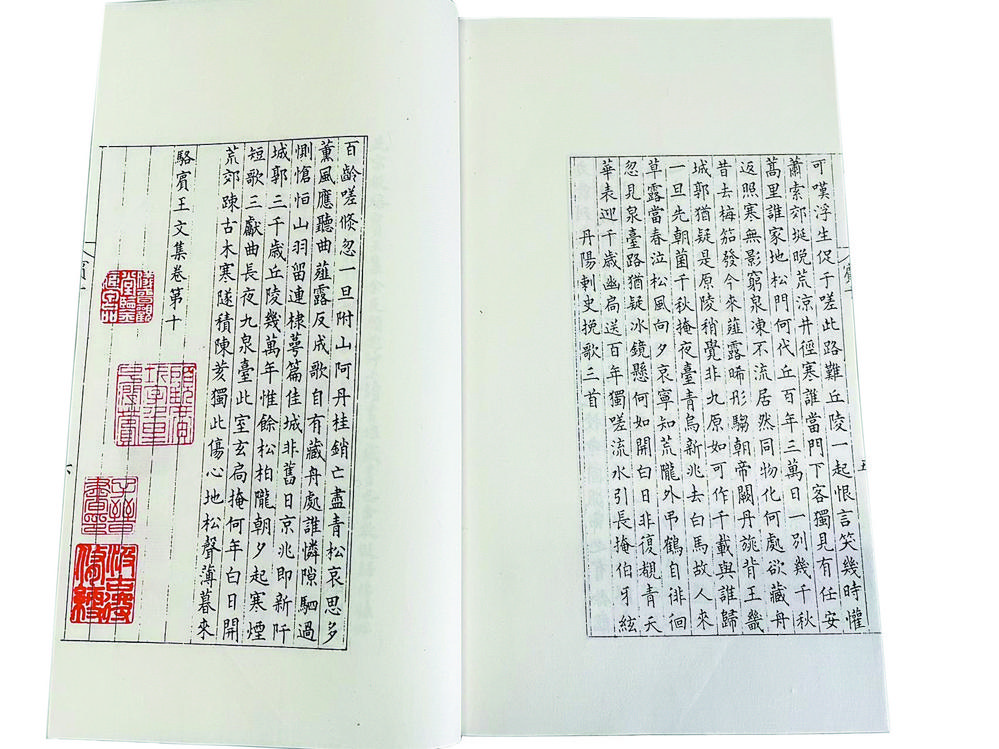 可嘆浮生促于嗟此路難丘陵一起恨言笑幾時懽
蕭索郊埏晚荒涼井徑寒誰當門下客獨見有任安
蒿里誰家地松門何代丘百年三萬日一別幾千秋
返照寒無影窮泉凍不流居然同物化何處欲藏舟
昔去梅笳發今來薤露晞彤騶朝帝闕丹旐背王畿
城郭猶疑是原陵稍覺非九原如可作千載與誰歸
一旦先朝菌千秋掩夜臺青烏新兆去白馬故人來
草露當春泣松風向夕哀寧知荒隴外弔鶴自徘徊
忽見泉臺路猶疑冰鏡懸何如開白日非復覩青天
華表迎千歲幽扃送百年獨嗟流水引長掩伯牙絃
丹陽刺史挽歌三首
五
百齡嗟倏忽一旦附山阿丹桂銷亡盡青松哀思多
薰風應聽曲薤露反成歌自有藏舟處誰憐隙駟過
惻愴恒山羽留連棣萼篇佳城非舊日京兆即新阡
城郭三千歲丘陵幾萬年惟餘松柏隴朝夕起寒煙
短歌三獻曲長夜九泉臺此室玄扃掩何年白日開
荒郊踈古木寒隧積陳荄獨此傷心地松聲薄暮來
駱賓王文集卷第十
六